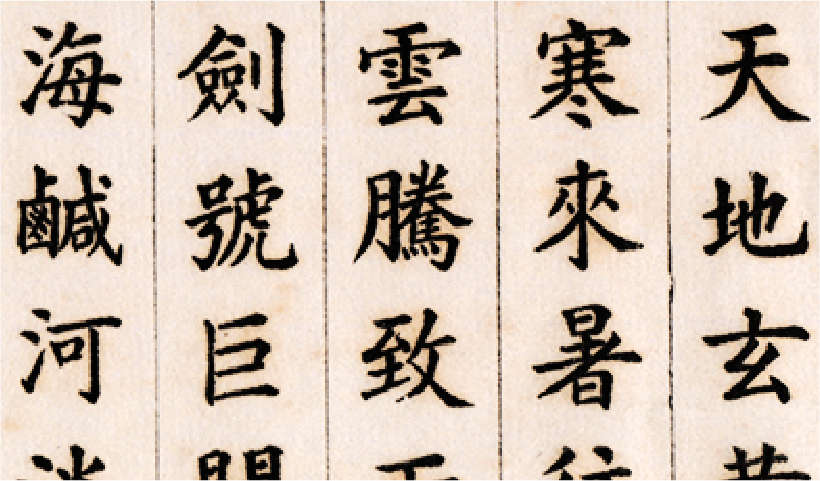 天地玄
寒來暑
雲騰致
劍號巨
海鹹河